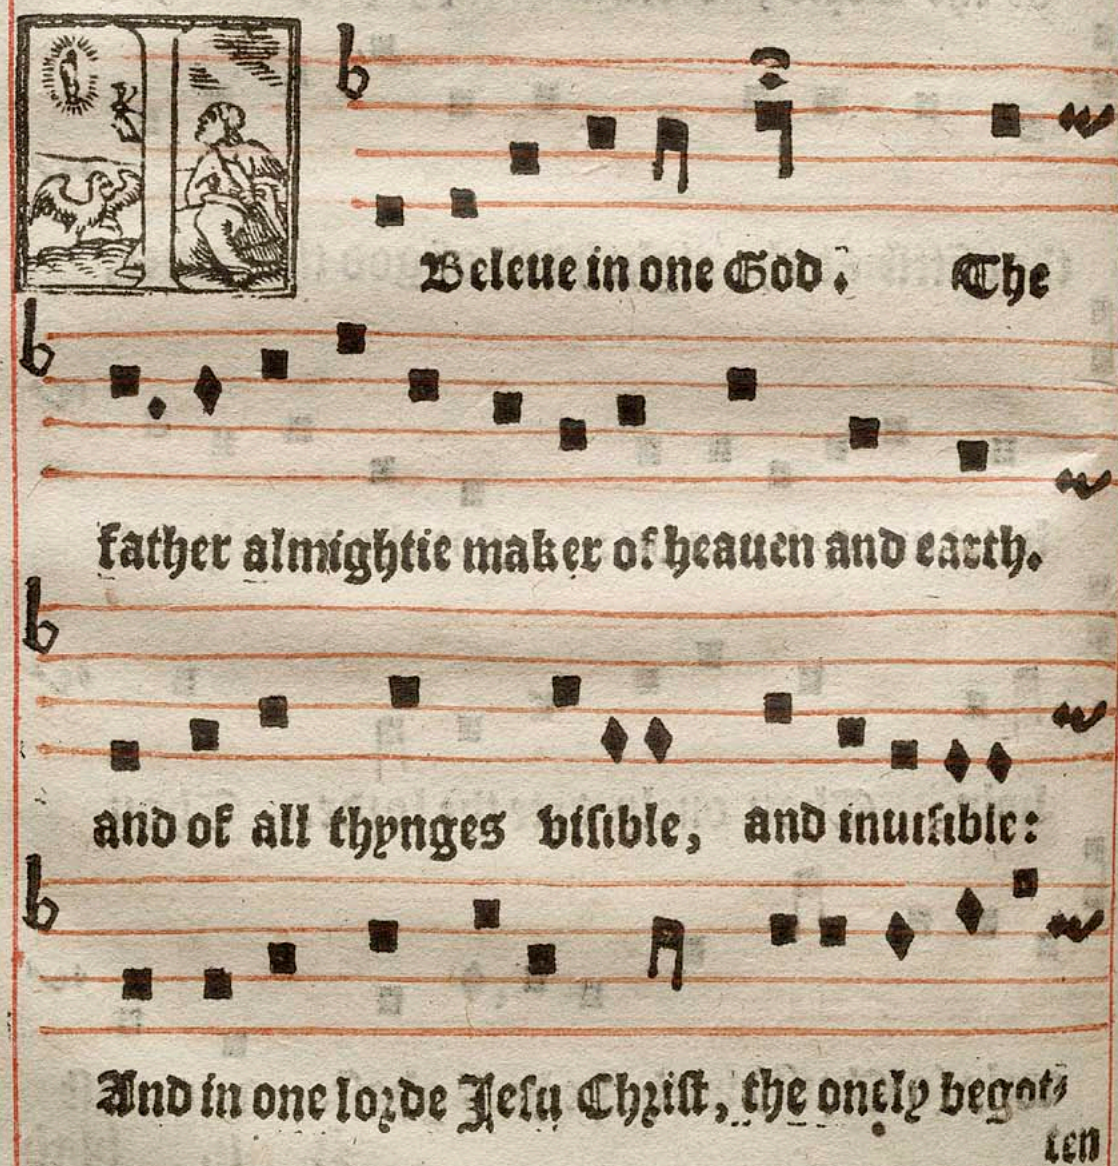 I Beleue in one God. The
father almightie maker of heauen and earth.
and of all thynges visible, and inuisible:
And in one lorde Jesu Christ, the onely begot-
ten